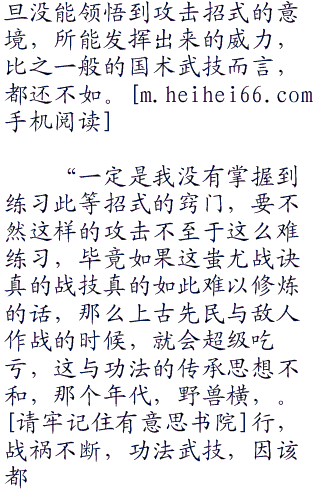 旦没能领悟到攻击招式的意
境，所能发挥出来的威力，
比之一般的国术武技而言，
都还不如。[m.heihei66.com
手机阅读]
“一定是我没有掌握到
练习此等招式的窍门，要不
然这样的攻击不至于这么难
练习，毕竟如果这蚩尤战诀
真的战技真的如此难以修炼
的话，那么上古先民与敌人
作战的时候，就会超级吃
亏，这与功法的传承思想不
和，那个年代，野兽横，。
[请牢记住有意思书院]行，
战祸不断，功法武技，因该
都